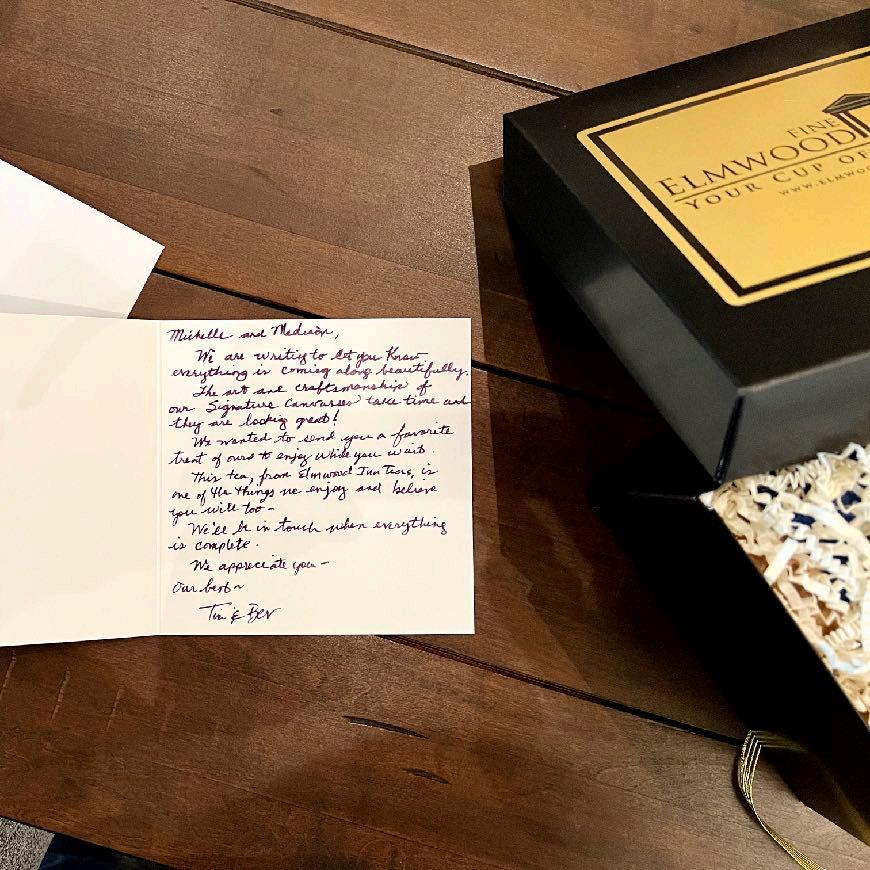 Michelle and Madison,
We are writing to let you know
everything is coming along beautifully.
The art and craftsmanship of
our Signature Canvasses take time and
they are looking great!
We wanted to send you a favorite
treat of ours to enjoy while you wait.
This tea, from Elmwood Inn Teas, is
one of the things we enjoy and believe
you will too-
We'll be in touch when everything
is complete.
We appreciate you-
Our best~
Tim & Bev
FINE
ELMWOOD
YOUR CUP OF
WWW.ELMWO